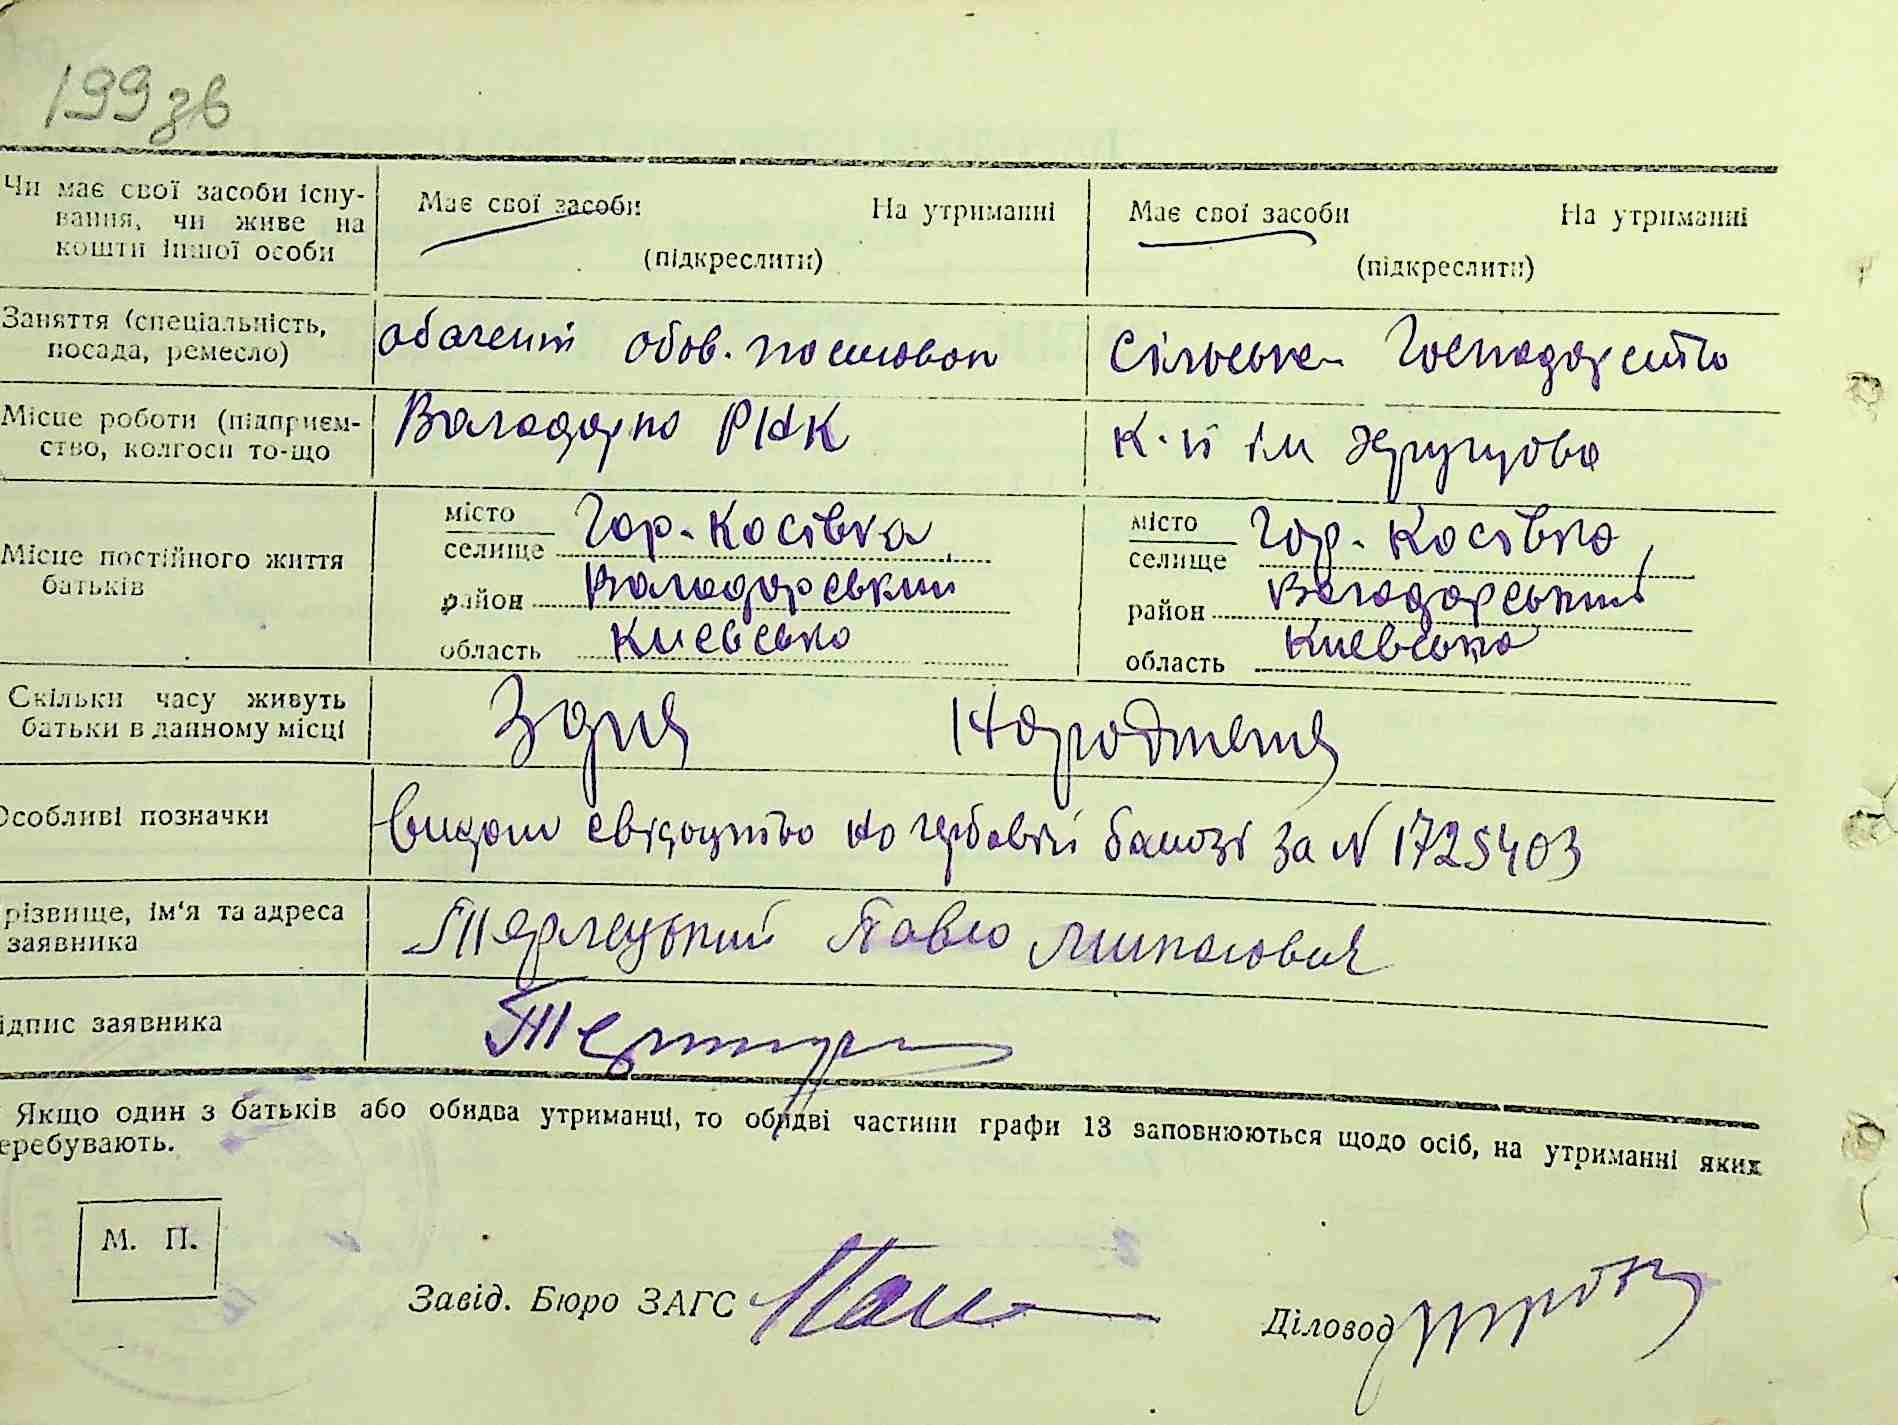 199зв
Чи має свої засоби існу-
вання, чи живе на
кошти іншої особи
Має свої засоби На утриманні
(підкреслити)
Має свої засоби На утриманні
(підкреслити)
Заняття (спеціальність,
посада, ремесло)
обагент обов.
Сільське Господарство
Місце роботи (підприєм-
ство, колгосп то-що
Володарка РНК
к-п ім Хрущова
Місце постійного життя
батьків
місто
селище Гор. Косівка,
район Володарський
область Киевська
місто
селище Гор. Косівка,
район Володарський
область Киевська
Скільки часу живуть
батьки в данному місці
З дня народження
Особливі позначки
Видано свідоцтво на гербовій бамозі за N 1725403
різвище, ім'я та адреса
заявника
Терлецький Павло Миколович
ідпис заявника
Якщо один з батьків або обидва утриманці, то обидві частини графи 13 заповнюються щодо осіб, на утриманні яких
еребувають.
М. П.
Завід. Бюро ЗАГС
Діловод